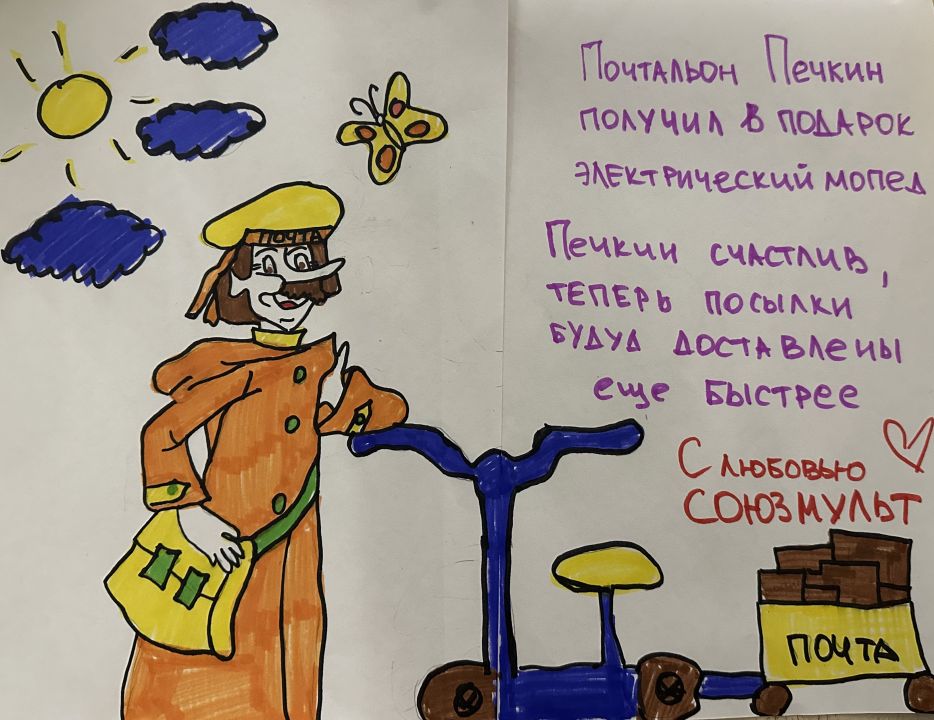 ПОЧТА
Почтальон Печкин
получил в подарок
электрический мопед
Печкин счастлив,
теперь посылки
будуд доставлены
еще быстрее
С любовью
СОЮЗМУЛЬТ
ПОЧТА